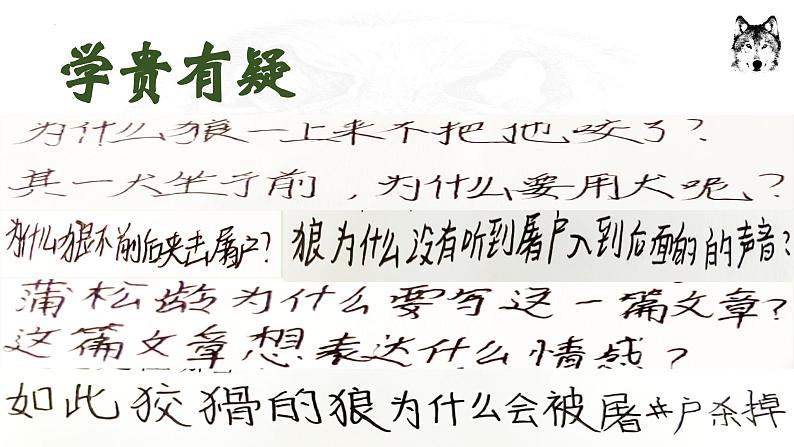 学贵有疑
为什么狼一上来不把他咬了?
其一犬坐于前，为什么要用犬呢?
为什么狼不前后夹击屠户?
狼为什么没有听到屠户入到后面的的声音?
蒲松龄为什么要写这一篇文章?
这篇文章想表达什么情感?
如此狡猾的狼为什么会被屠户杀掉